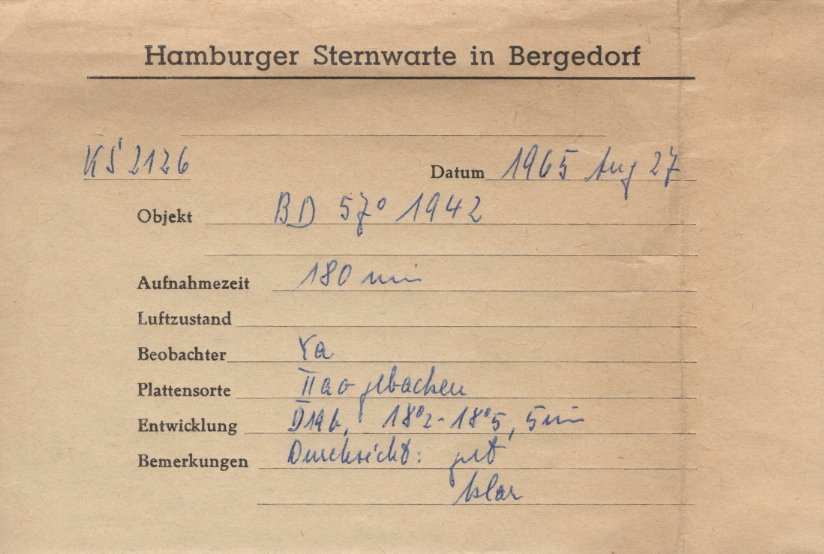 Hamburger Sternwarte in Bergedorf
KS 2126 Datum 1965 Aug 27
Objekt BD 57° 1942
Aufnahmezeit 180 min
Luftzustand
Beobachter
Plattensorte IIaO gebacken
Entwicklung D19b, 18°2-18°5, 5 min
Bemerkungen Durchsicht: gut
klar